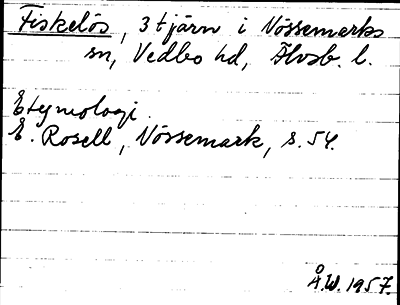 Fiskelös, 3 tjärn i Nössemarks
sn, Vedbo hd, Älvsb. l.
Etymologi.
E. Rosell, Nössemark, s. 54.
Å.W. 1957.